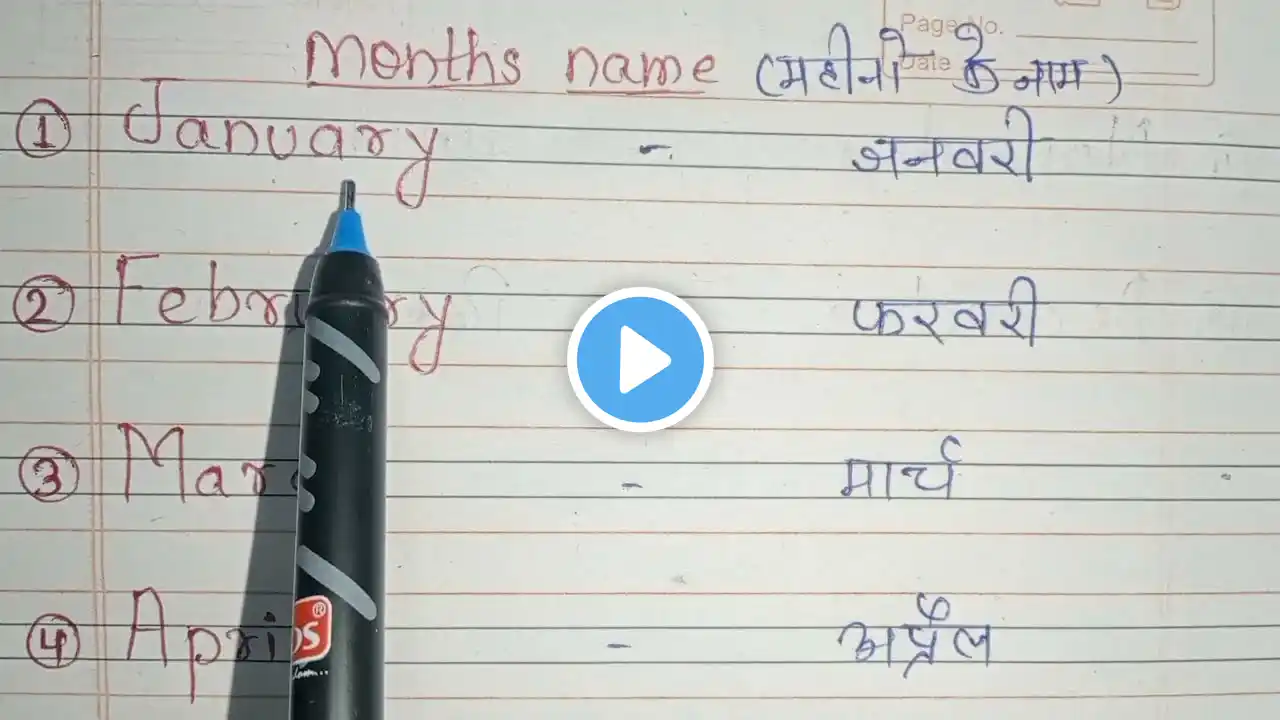 Page No.
Date
Months name (महीनो के नाम)
① January - जनवरी
② February फरवरी
③ Marc - मार्च
④ Apri - अप्रैल